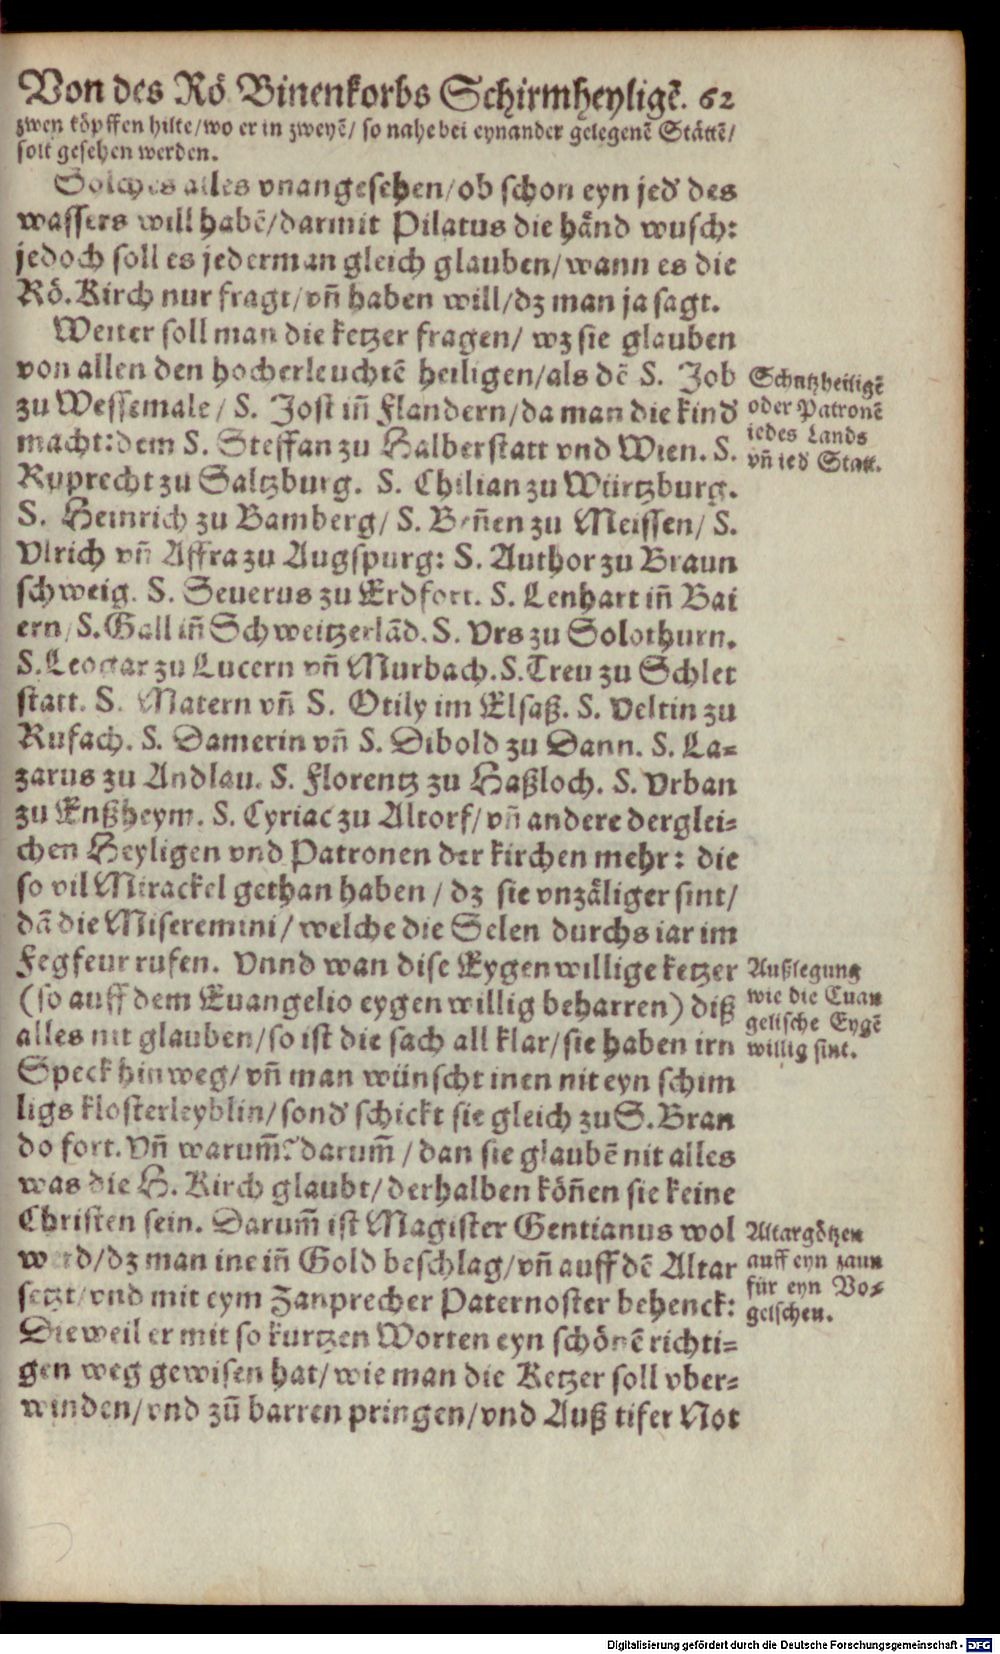 Von des Rö Binenkorbs Schirmheyligẽ. 62
zwen köpffen hilte/wo er in zweyẽ/ so nahe bei eynander gelegenẽ Stättẽ/
solt gesehen werden.
Solches alles vnangesehen/ob schon eyn jed' des
wassers will habẽ/darmit Pilatus die händ wusch:
jedoch soll es jederman gleich glauben/wann es die
Rö. Kirch nur fragt/vñ haben will/dz man ja sagt.
Weiter soll man die ketzer fragen/ wz sie glauben
von allen den hocherleuchtẽ heiligen/als dẽ S. Job
zu Wessemale/ S. Jost iñ Flandern/da man die kind'
macht:dem S. Steffan zu Halberstatt vnd Wien. S.
Ruprecht zu Saltzburg. S. Chilian zu Würtzburg.
S. Heinrich zu Bamberg/ S. Beñen zu Meissen/ S.
Vlrich vñ Affra zu Augspurg: S. Author zu Braun
schweig. S. Seuerus zu Erdfort. S. Lenhart iñ Bai
ern/S. Gall iñ Schweitzerlãd. S. Vrs zu Solothurn.
S. Leogar zu Lucern vñ Murbach. S. Treu zu Schlet
statt. S. Matern vñ S. Otily im Elsaß. S. Veltin zu
Rufach. S. Damerin vñ S. Dibold zu Dann. S. La=
zarus zu Andlau. S. Florentz zu Haßloch. S. Vrban
zu Enßheym. S. Cyriac zu Altorf/vñ andere derglei=
chen Heyligen vnd Patronen der kirchen mehr: die
so vil Mirackel gethan haben/ dz sie vnzäliger sint/
dã die Miseremini/ welche die Selen durchs iar im
Fegfeur rufen. Vnnd wan dise Eygenwillige ketzer
(so auff dem Euangelio eygenwillig beharren) diß
alles nit glauben/so ist die sach all klar/sie haben irn
Speck hinweg/vñ man wünscht inen nit eyn schim
ligs klosterleyblin/sond' schickt sie gleich zu S. Bran
do fort. Vñ warum̃? darum̃/ dan sie glaubẽ nit alles
was die H. Kirch glaubt/derhalben köñen sie keine
Christen sein. Darum̃ ist Magister Gentianus wol
werd/dz man ine iñ Gold beschlag/vñ auff dẽ Altar
setzt/vnd mit eym Zanprecher Paternoster behenck:
Dieweil er mit so kurtzen Worten eyn schönẽ richti=
gen weg gewisen hat/wie man die Ketzer soll vber=
winden/vnd zũ barren pringen/vnd Auß tifer Not
Schutzheiligẽ
oder Patronẽ
iedes Lands
vñ ied' Statt.
Außlegung
wie die Euan
gelische Eygẽ
willig sint.
Altargötzen
auff eyn zaun
für eyn Vo=
gelschen.
Digitalisierung gefördert durch die Deutsche Forschungsgemeinschaft - DFG